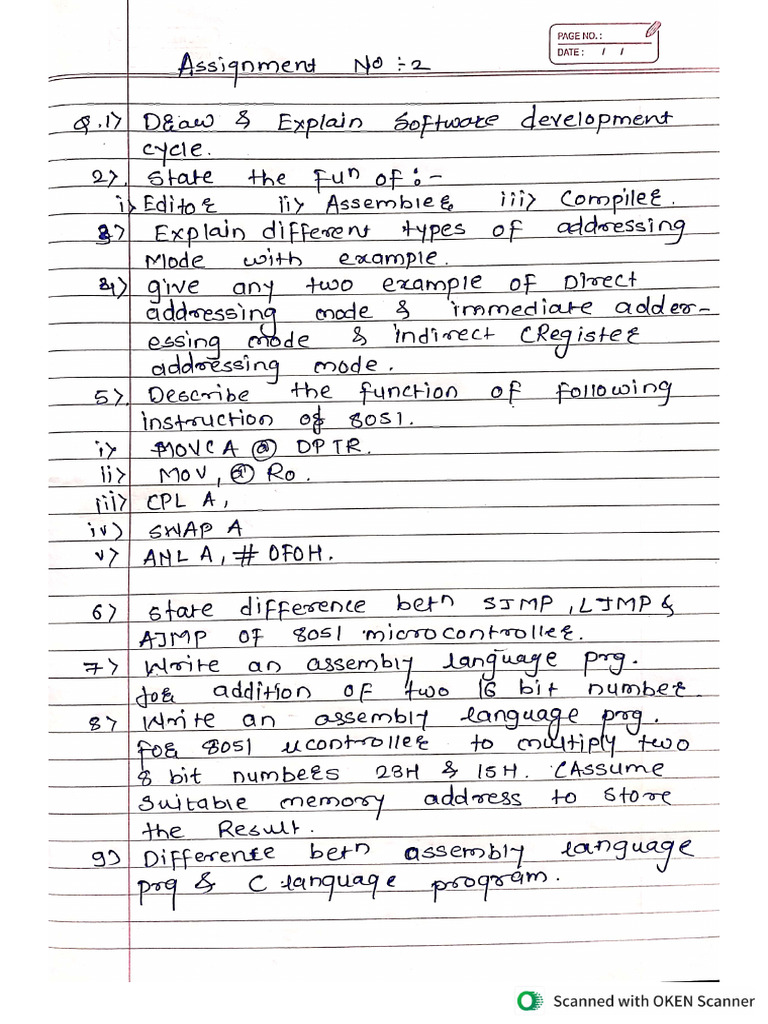 PAGE NO. :
DATE : / /
Assignment No :- 2
Q.1) Draw & Explain Software development
cycle.
2). State the Funⁿ of :-
i) Editor ii) Assembler iii) Compiler.
3) Explain different types of addressing
Mode with example.
4) give any two example of Direct
addressing mode & immediate adder-
essing mode & indirect (Register
addressing mode.
5). Describe the function of following
instruction of 8051.
i) MOVC A @ DPTR.
ii) MOV, @ R0.
iii) CPL A,
iv) SWAP A
v) ANL A, # 0F0H.
6) State difference betn SJMP, LJMP &
AJMP of 8051 microcontroller.
7) Write an assembly language prg.
for addition of two 16 bit number.
8) Write an assembly language prg.
for 8051 μcontroller to multiply two
8 bit numbers 28H & 15H. (Assume
suitable memory address to store
the Result.
9) Difference betn assembly language
prg & C language program.
Scanned with OKEN Scanner